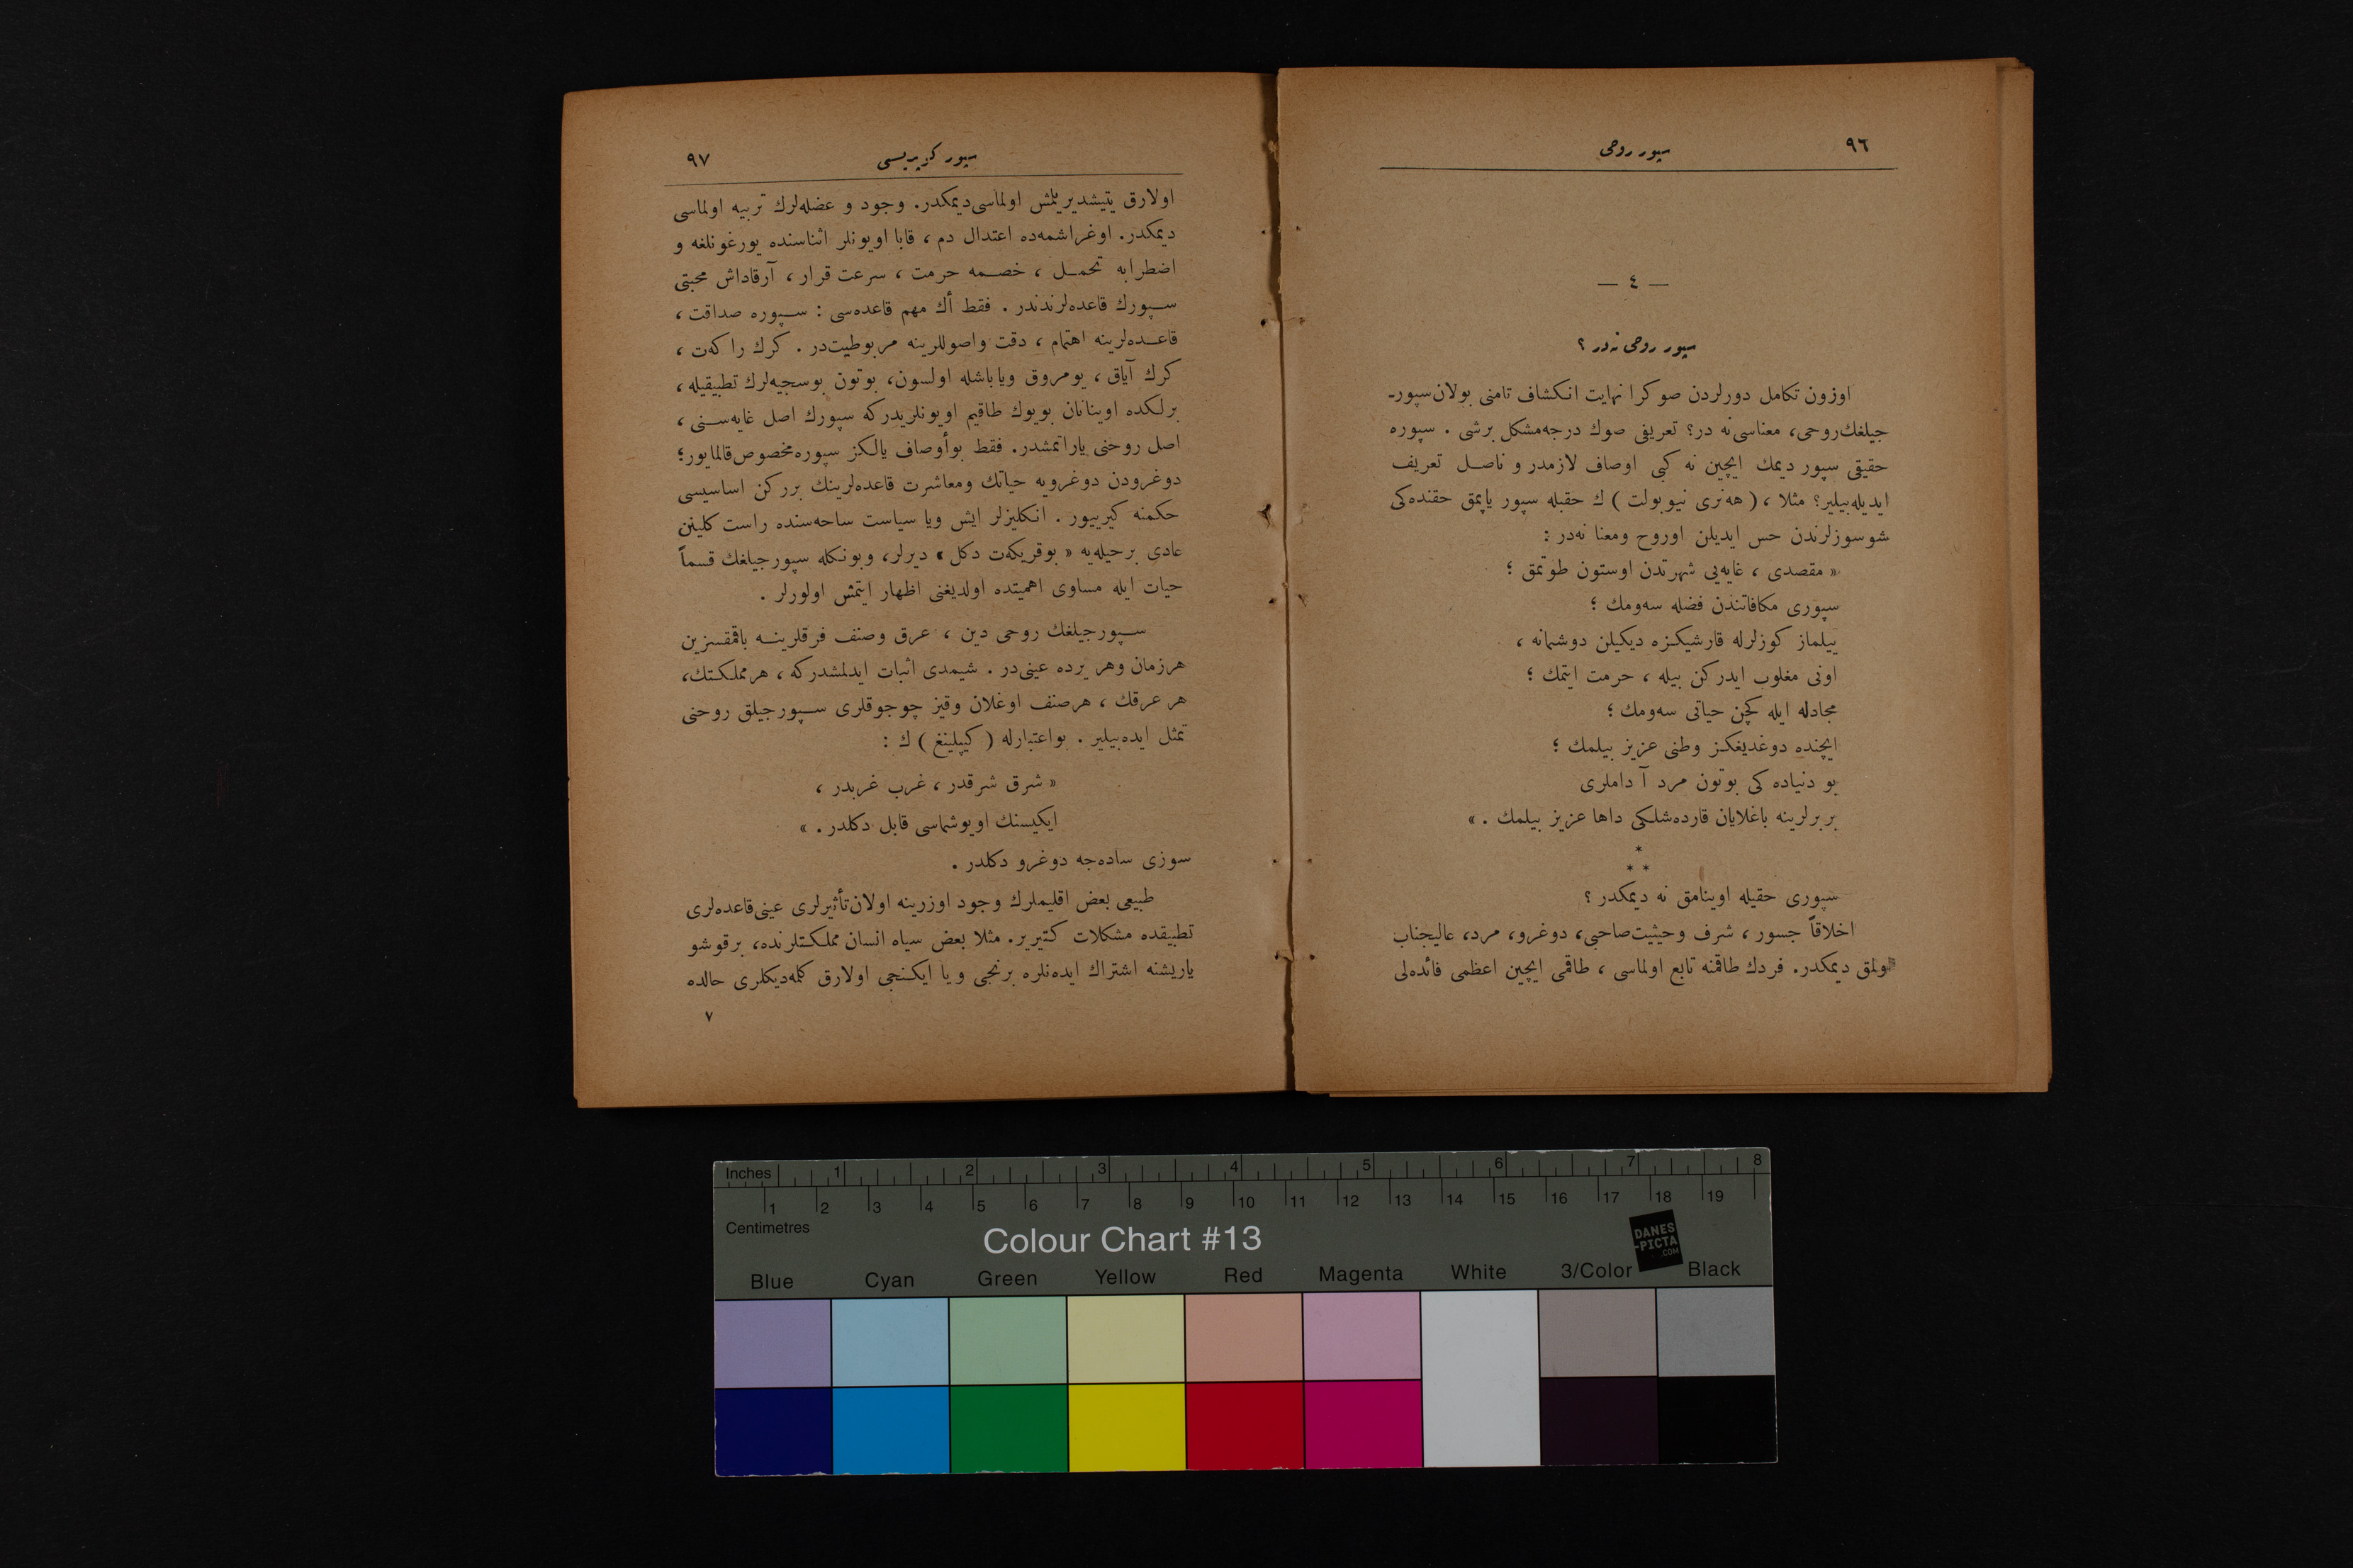 ٩٦
سپور روحی
— ٤ —
سپور روحی نه‌در ؟
اوزون تكامل دورلردن صوكرا نهایت انكشاف تامنی بولان سپور-
جیلغك روحی، معناسی نه در؟ تعریفی صوك درجه مشكل برشی . سپوره
حقیقی سپور دیمك ایچین نه كبی اوصاف لازمدر و ناصل تعریف
ایدیله‌بیلیر؟ مثلا ، ( هه‌نری نیوبولت ) ك حقیله سپور یاپمق حقنده‌كی
شو سوزلرندن حس ایدیلن اوروح ومعنا نه‌در :
« مقصدی ، غایه‌یی شهرتدن اوستون طوتمق ؛
سپوری مكافاتندن فضله سه‌ومك ؛
ییلماز كوزلرله قارشیكزه دیكیلن دوشمانه ،
اونی مغلوب ایدركن بیله ، حرمت ایتمك ؛
مجادله ایله كچن حیاتی سه‌ومك ؛
ایچنده دوغدیغكز وطنی عزیز بیلمك ؛
بو دنیاده كی بوتون مرد آ داملری
بربرلرینه باغلایان قارده‌شلكی داها عزیز بیلمك . »
*
* *
سپوری حقیله اوینامق نه دیمكدر ؟
اخلاقاً جسور ، شرف وحیثیت صاحبی، دوغرو، مرد، عالیجناب
اولمق دیمكدر. فردك طاقمنه تابع اولماسی ، طاقمی ایچین اعظمی فائده‌لی
سپور كزیریسی
٩٧
اولارق یتیشدیریلمش اولماسی دیمكدر. وجود و عضله‌لرك تربیه اولماسی
دیمكدر. اوغراشمه‌ده اعتدال دم ، قابا اویونلر اثناسنده یورغونلغه و
اضطرابه تحمـل ، خصـمه حرمت ، سرعت قرار ، آرقاداش محبتی
سـپورك قاعده‌لرندندر . فقط أك مهم قاعده‌سی : سـپوره صداقت ،
قاعـده‌لرینه اهتمام ، دقت واصوللرینه مربوطیت‌در . كرك راكه‌ت ،
كرك آیاق ، یومروق ویا باشله اولسون، بوتون بوسجیه‌لرك تطبیقیله ،
برلكده اوینانان بویوك طاقیم اویونلریدركه سپورك اصل غایه‌سـنی ،
اصل روحنی یاراتمشدر. فقط بوأوصاف یالكز سپوره مخصوص قالمایور؛
دوغرودن دوغرویه حیاتك ومعاشرت قاعده‌لرینك برركن اساسیسی
حكمنه كیرییور . انكلیزلر ایش ویا سیاست ساحه‌سنده راست كلینن
عادی برحیله‌یه « بوقریكه‌ت دكل » دیرلر، وبونكله سپورجیلغك قسماً
حیات ایله مساوی اهمیتده اولدیغنی اظهار ایتمش اولورلر .
سـپورجیلغك روحی دین ، عرق وصنف فرقلرینـه باقمقسزین
هرزمان وهر یرده عینی‌در . شیمدی اثبات ایدلمشدركه ، هرمملكتك،
هر عرقك ، هرصنف اوغلان وقیز چوجوقلری سـپورجیلق روحنی
تمثل ایده‌بیلیر . بواعتبارله ( كیپلینغ ) ك :
« شرق شرقدر ، غرب غربدر ،
ایكیسنك اویوشماسی قابل دكلدر . »
سوزی ساده‌جه دوغرو دكلدر .
طبیعی بعض اقلیملرك وجود اوزرینه اولان تأثیرلری عینی قاعده‌لری
تطبیقده مشكلات كتیریر. مثلا بعض سیاه انسان مملكتلرنده، برقوشو
یاریشنه اشتراك ایده‌نلره برنجی ویا ایكنجی اولارق كلمه‌دیكلری حالده
٧
Inches 1 2 3 4 5 6 7 8
1 2 3 4 5 6 7 8 9 10 11 12 13 14 15 16 17 18 19
Centimetres
Colour Chart #13
DANES
-PICTA
.COM
Blue Cyan Green Yellow Red Magenta White 3/Color Black